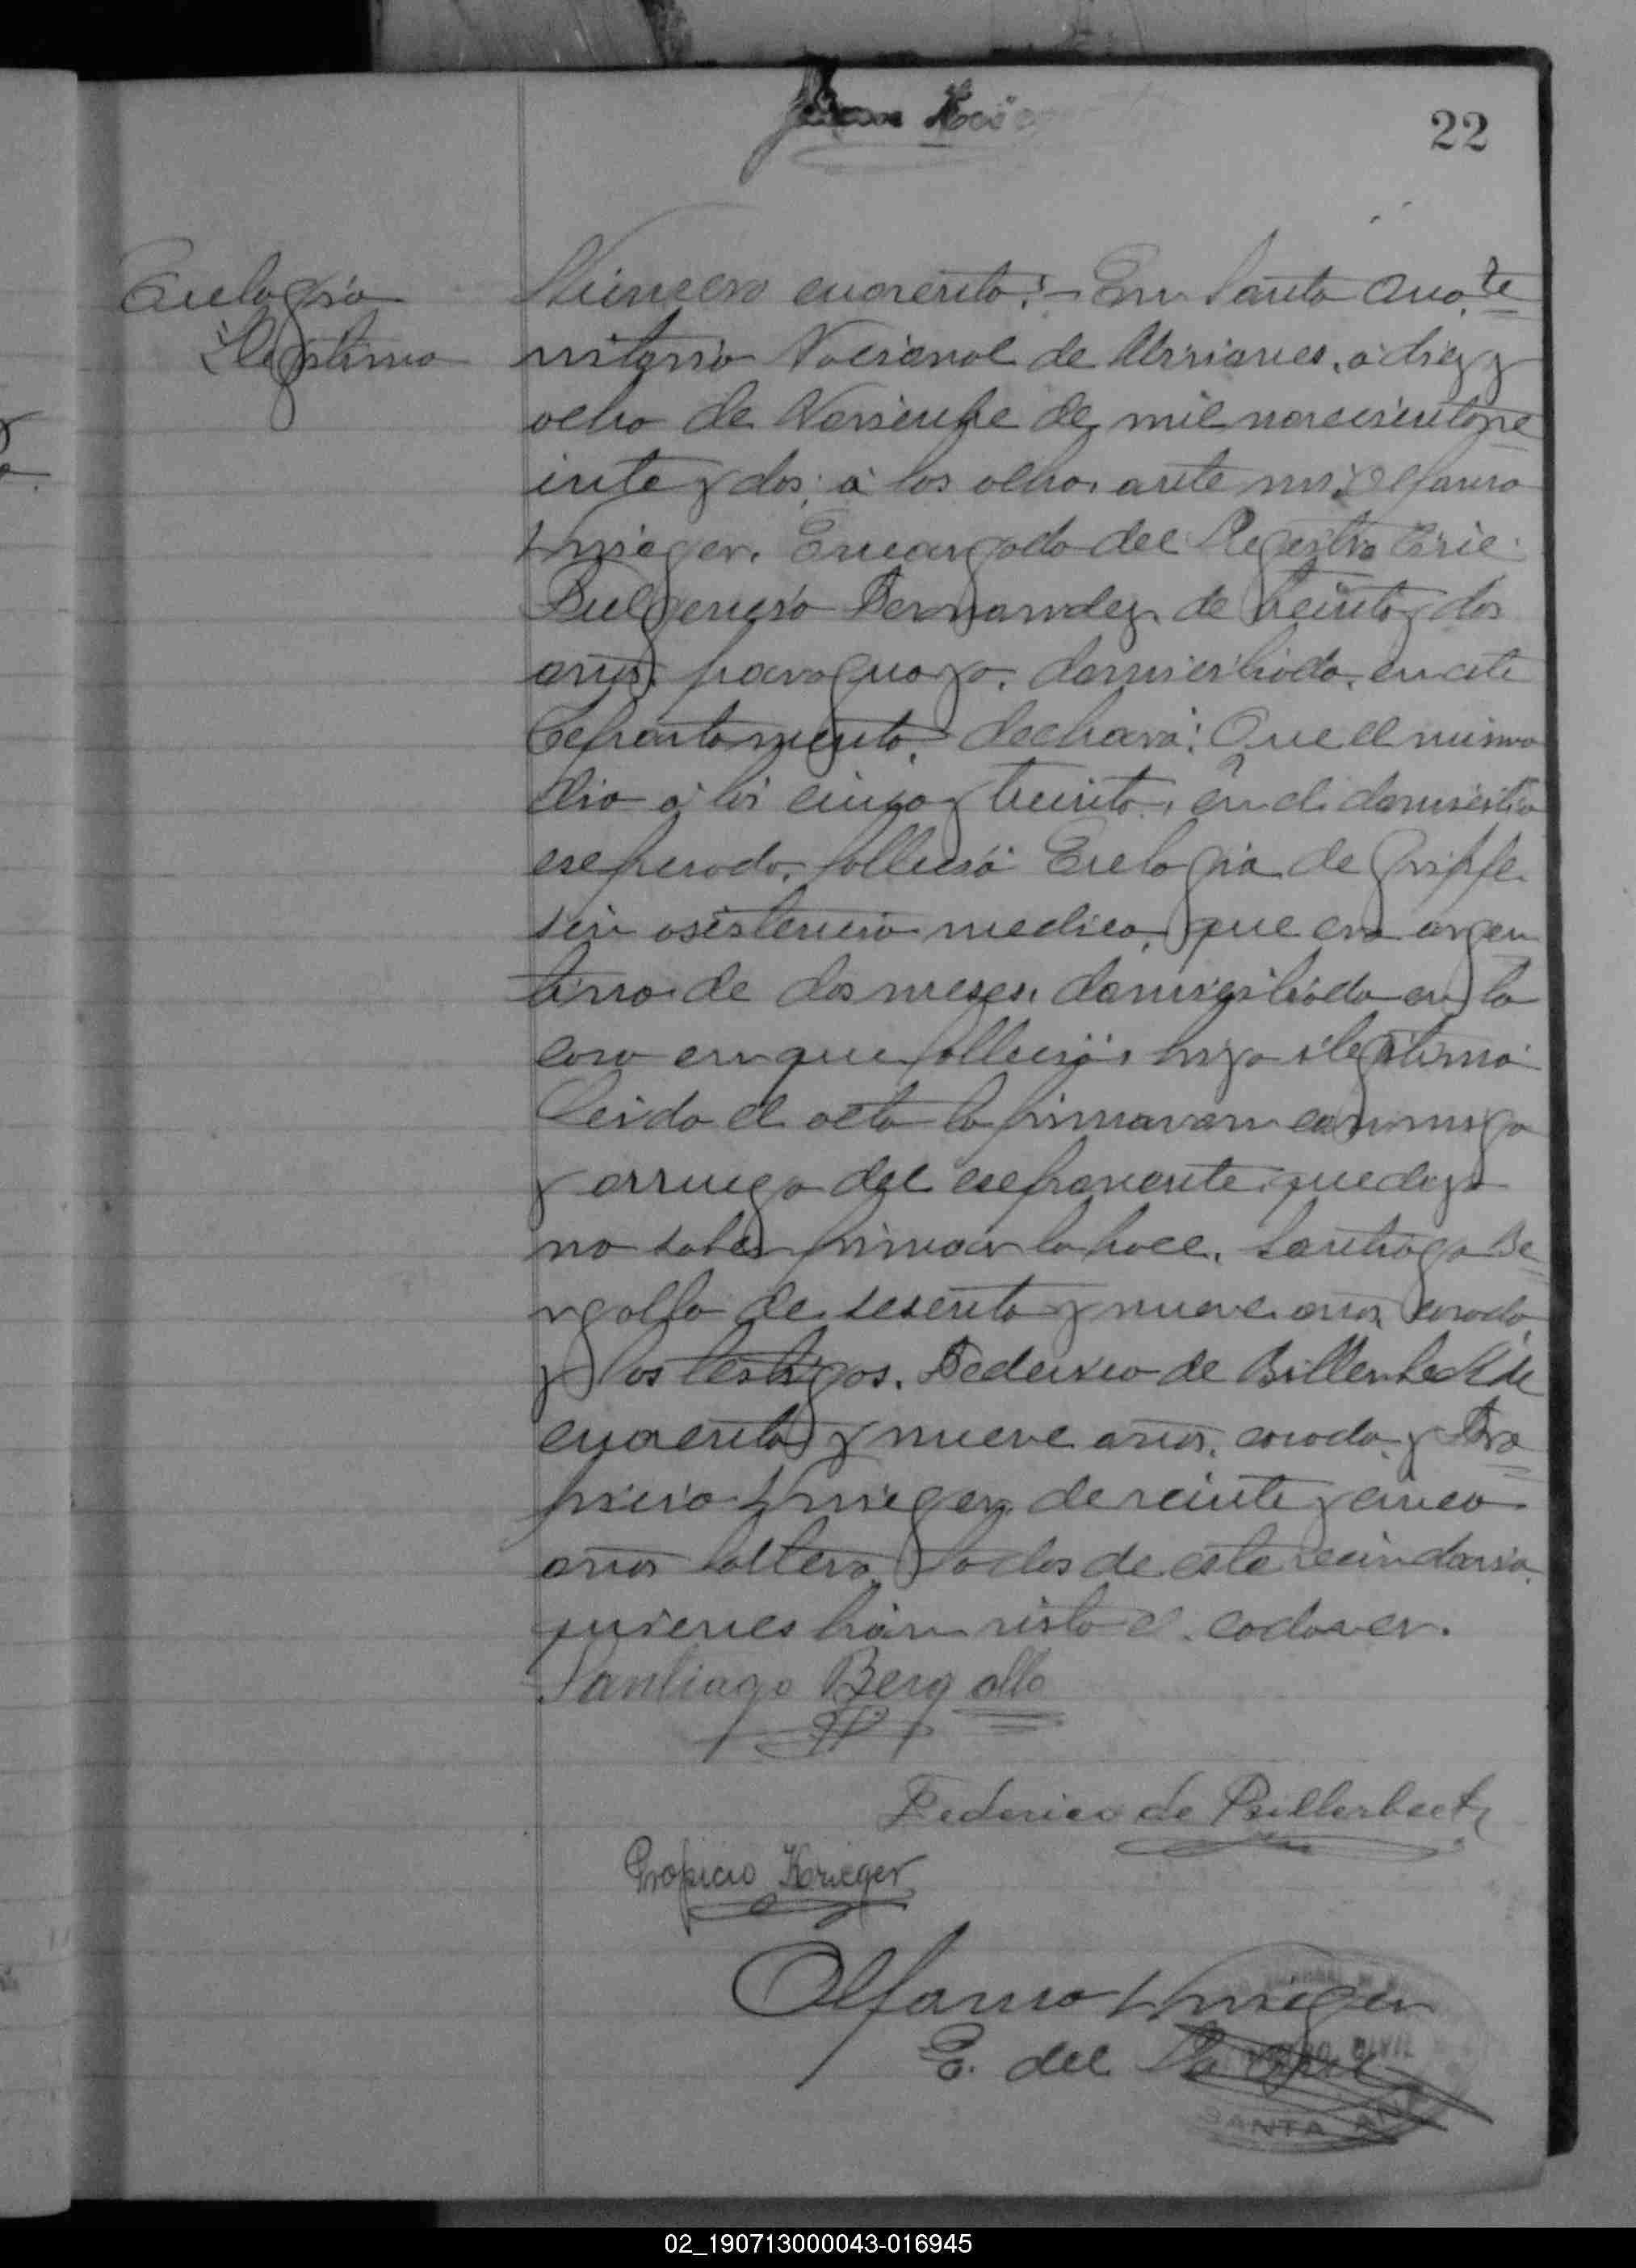 22
Eulogia
Ilegitima
Número cuarenta:- En Santa Ana, Te
rritorio Nacional de Misiones, a diez y
ocho de de mil novecientos ve
inte y dos, á las ocho, ante mi, Alfonso
Krieger, Encargado del Registro Civil
Fulgencio Fernandez, de treinta y dos
años, paraguayo, domiciliado en este
Departamento, declara: Que el mismo
dia á las cinco y treinta, en el domicilio
expresado, falleció Eulogia de Grippe
sin asistencia medica, que era argen
tina de dos meses, domiciliada en la
casa en que falleció, hija ilegitima
Leida el acta la firmaron conmigo
y arruego del exponente que dijo
no saber firmar lo hace, Santiago Be
rgallo de sesenta y nueve años, casado,
y los testigos, Federico de Billerbeck de
cuarenta y nueve años, casado y Pro
picio Krieger, de veinte y cinco
años soltero, todos de este vecindario
quienes han visto el cadaver.
Santiago Bergallo
Federico de Billerbeck
Propicio Krieger
Alfonso Krieger
E. del
SANTA ANA
02_190713000043-016945